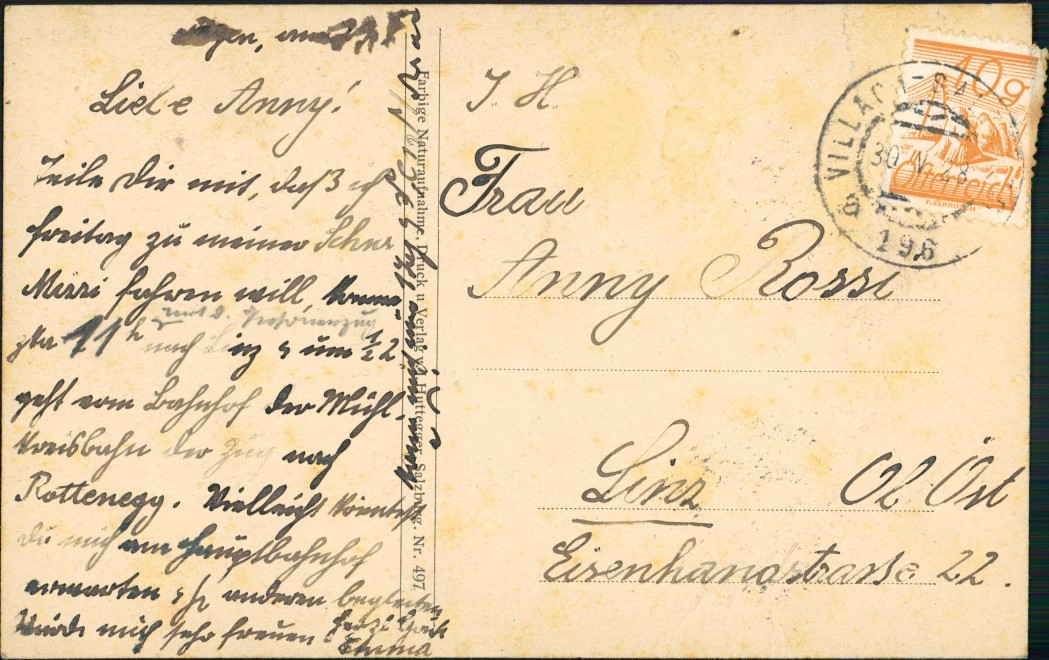 Liebe Anny!
Teile Dir mit, daß ich
Freitag zu meiner
Mizzi fahren will, komme
11 h nach Linz & um ½2
mit d. Personenzug
geht vom Bahnhof der Mühl-
kreisbahn der Zug nach
Rottenegg. Vielleicht könntest
Du mich am Hauptbahnhof
erwarten &
würde mich sehr freuen
Emma
Farbige Naturaufnahme, Druck u. Verlag v. Huttegger, Salzburg. Nr. 497
I. H.
Frau
Anny Rossi
Linz Ob. Öst
Eisenhandstrasse 22.
10g
Österreich
VILLACH
30 IV 28
196